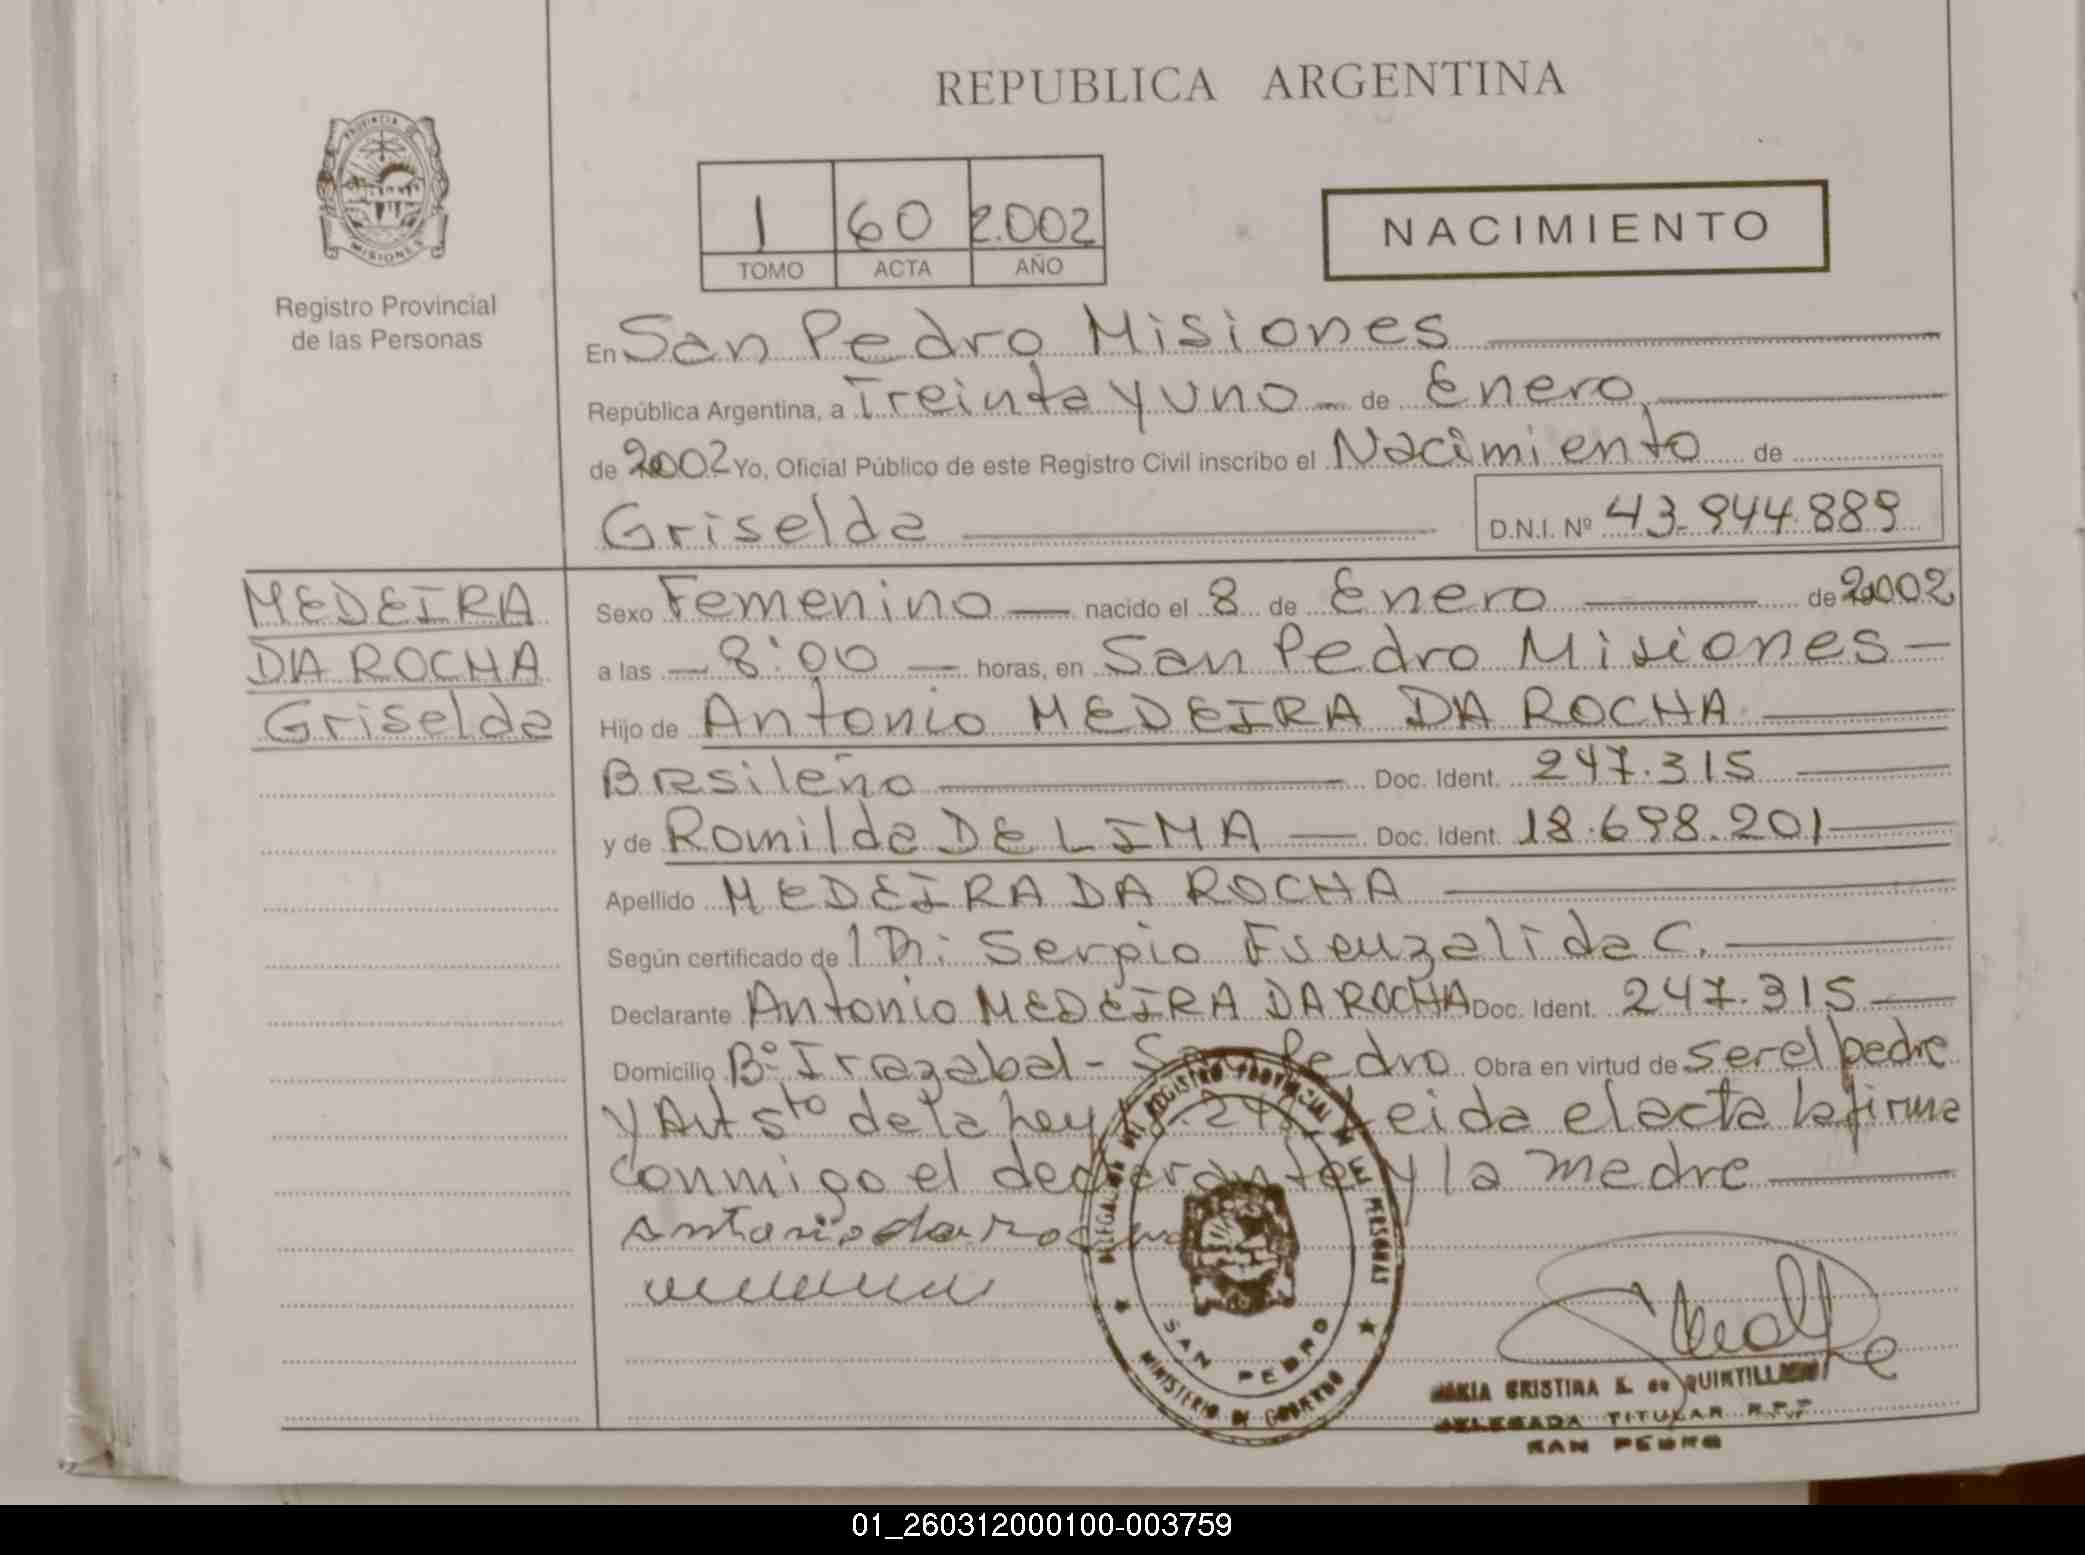 REPUBLICA ARGENTINA
PROVINCIA DE
MISIONES
Registro Provincial
de las Personas
1 60 2.002
TOMO ACTA AÑO
NACIMIENTO
En San Pedro Misiones
República Argentina, a Treinta y uno - de Enero
de 2002 Yo, Oficial Público de este Registro Civil inscribo el Nacimiento de
Griselda
D.N.I. Nº 43.944.889
MEDEIRA
DA ROCHA
Griselda
Sexo Femenino — nacido el 8 de Enero de 2002
a las — 8:00 — horas, en San Pedro Misiones —
Hijo de Antonio MEDEIRA DA ROCHA
Brasileño Doc. Ident. 247.315
y de Romilda DE LIMA — Doc. Ident. 18.698.201
Apellido MEDEIRA DA ROCHA
Según certificado de Dr: Sergio Fuenzalida C.
Declarante Antonio MEDEIRA DA ROCHA Doc. Ident. 247.315
Domicilio Bº Irazabal - San Pedro Obra en virtud de ser el padre
y Art 5to de la Ley Leida el acta la firma
conmigo el declarante y la madre
Antonio da rocha
DELEGACION DEL REGISTRO PROVINCIAL DE LAS PERSONAS
SAN PEDRO
MINISTERIO DE GOBIERNO
MARIA CRISTINA K. de QUINTILLAN
DELEGADA TITULAR R.P.P.
SAN PEDRO
01_260312000100-003759